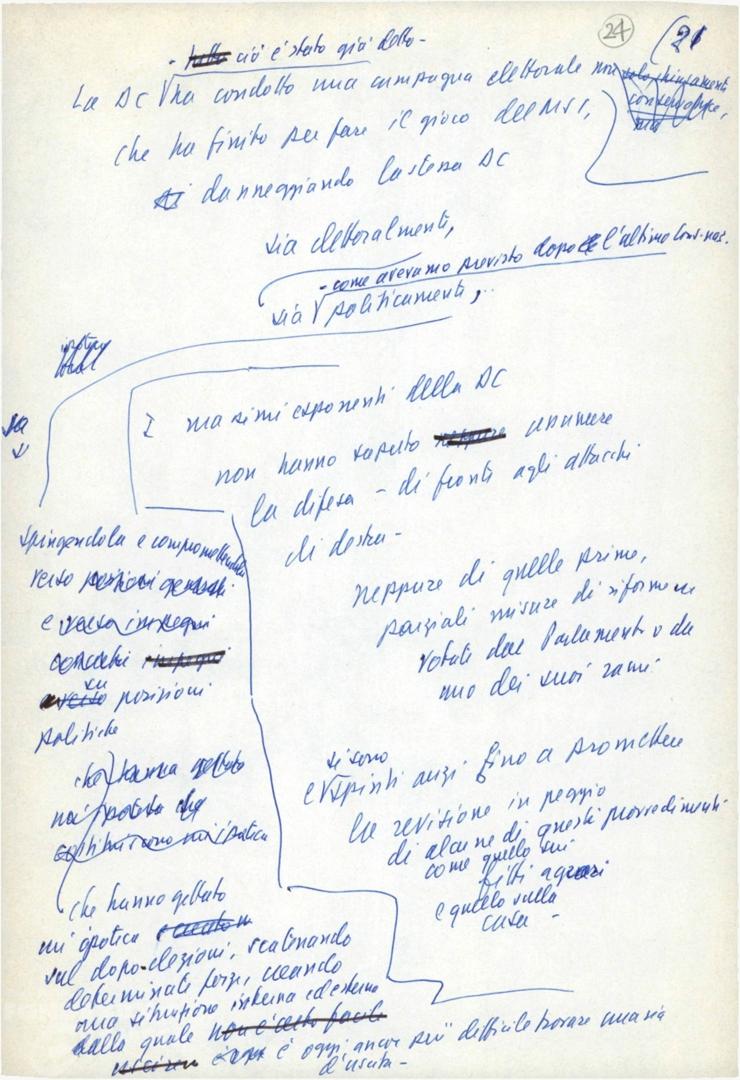 24
(21
- tutto ciò è stato già detto -
La DC ha condotto una campagna elettorale non solo chiusamente
conservatrice,
ma
che ha finito per fare il gioco del MSI,
danneggiando la stessa DC
sia elettoralmente,
- come avevamo previsto dopo l'ultimo Cons. naz.
sia politicamente,
I massimi esponenti della DC
non hanno saputo neppure assumere
la difesa - di fronte agli attacchi
di destra -
neppure di quelle prime,
parziali misure di riforme
votate dal Parlamento o da
uno dei suoi rami.
si sono
e spinti anzi fino a promettere
la revisione in peggio
di alcune di questi provvedimenti
come quello sui
fitti agrari
e quello sulla
casa -
spingendola e compromettendola
verso posizioni generali
e verso impegni
concreti impegni
verso su posizioni
politiche
che hanno gettato
un'ipoteca che
costituiscono un'ipoteca
che hanno gettato
un'ipoteca
sul dopo-elezioni, scatenando
determinate forze, creando
una situazione interna ed esterna
dalla quale non è certo facile
uscire è oggi ancor più difficile trovare una via
d'uscita -